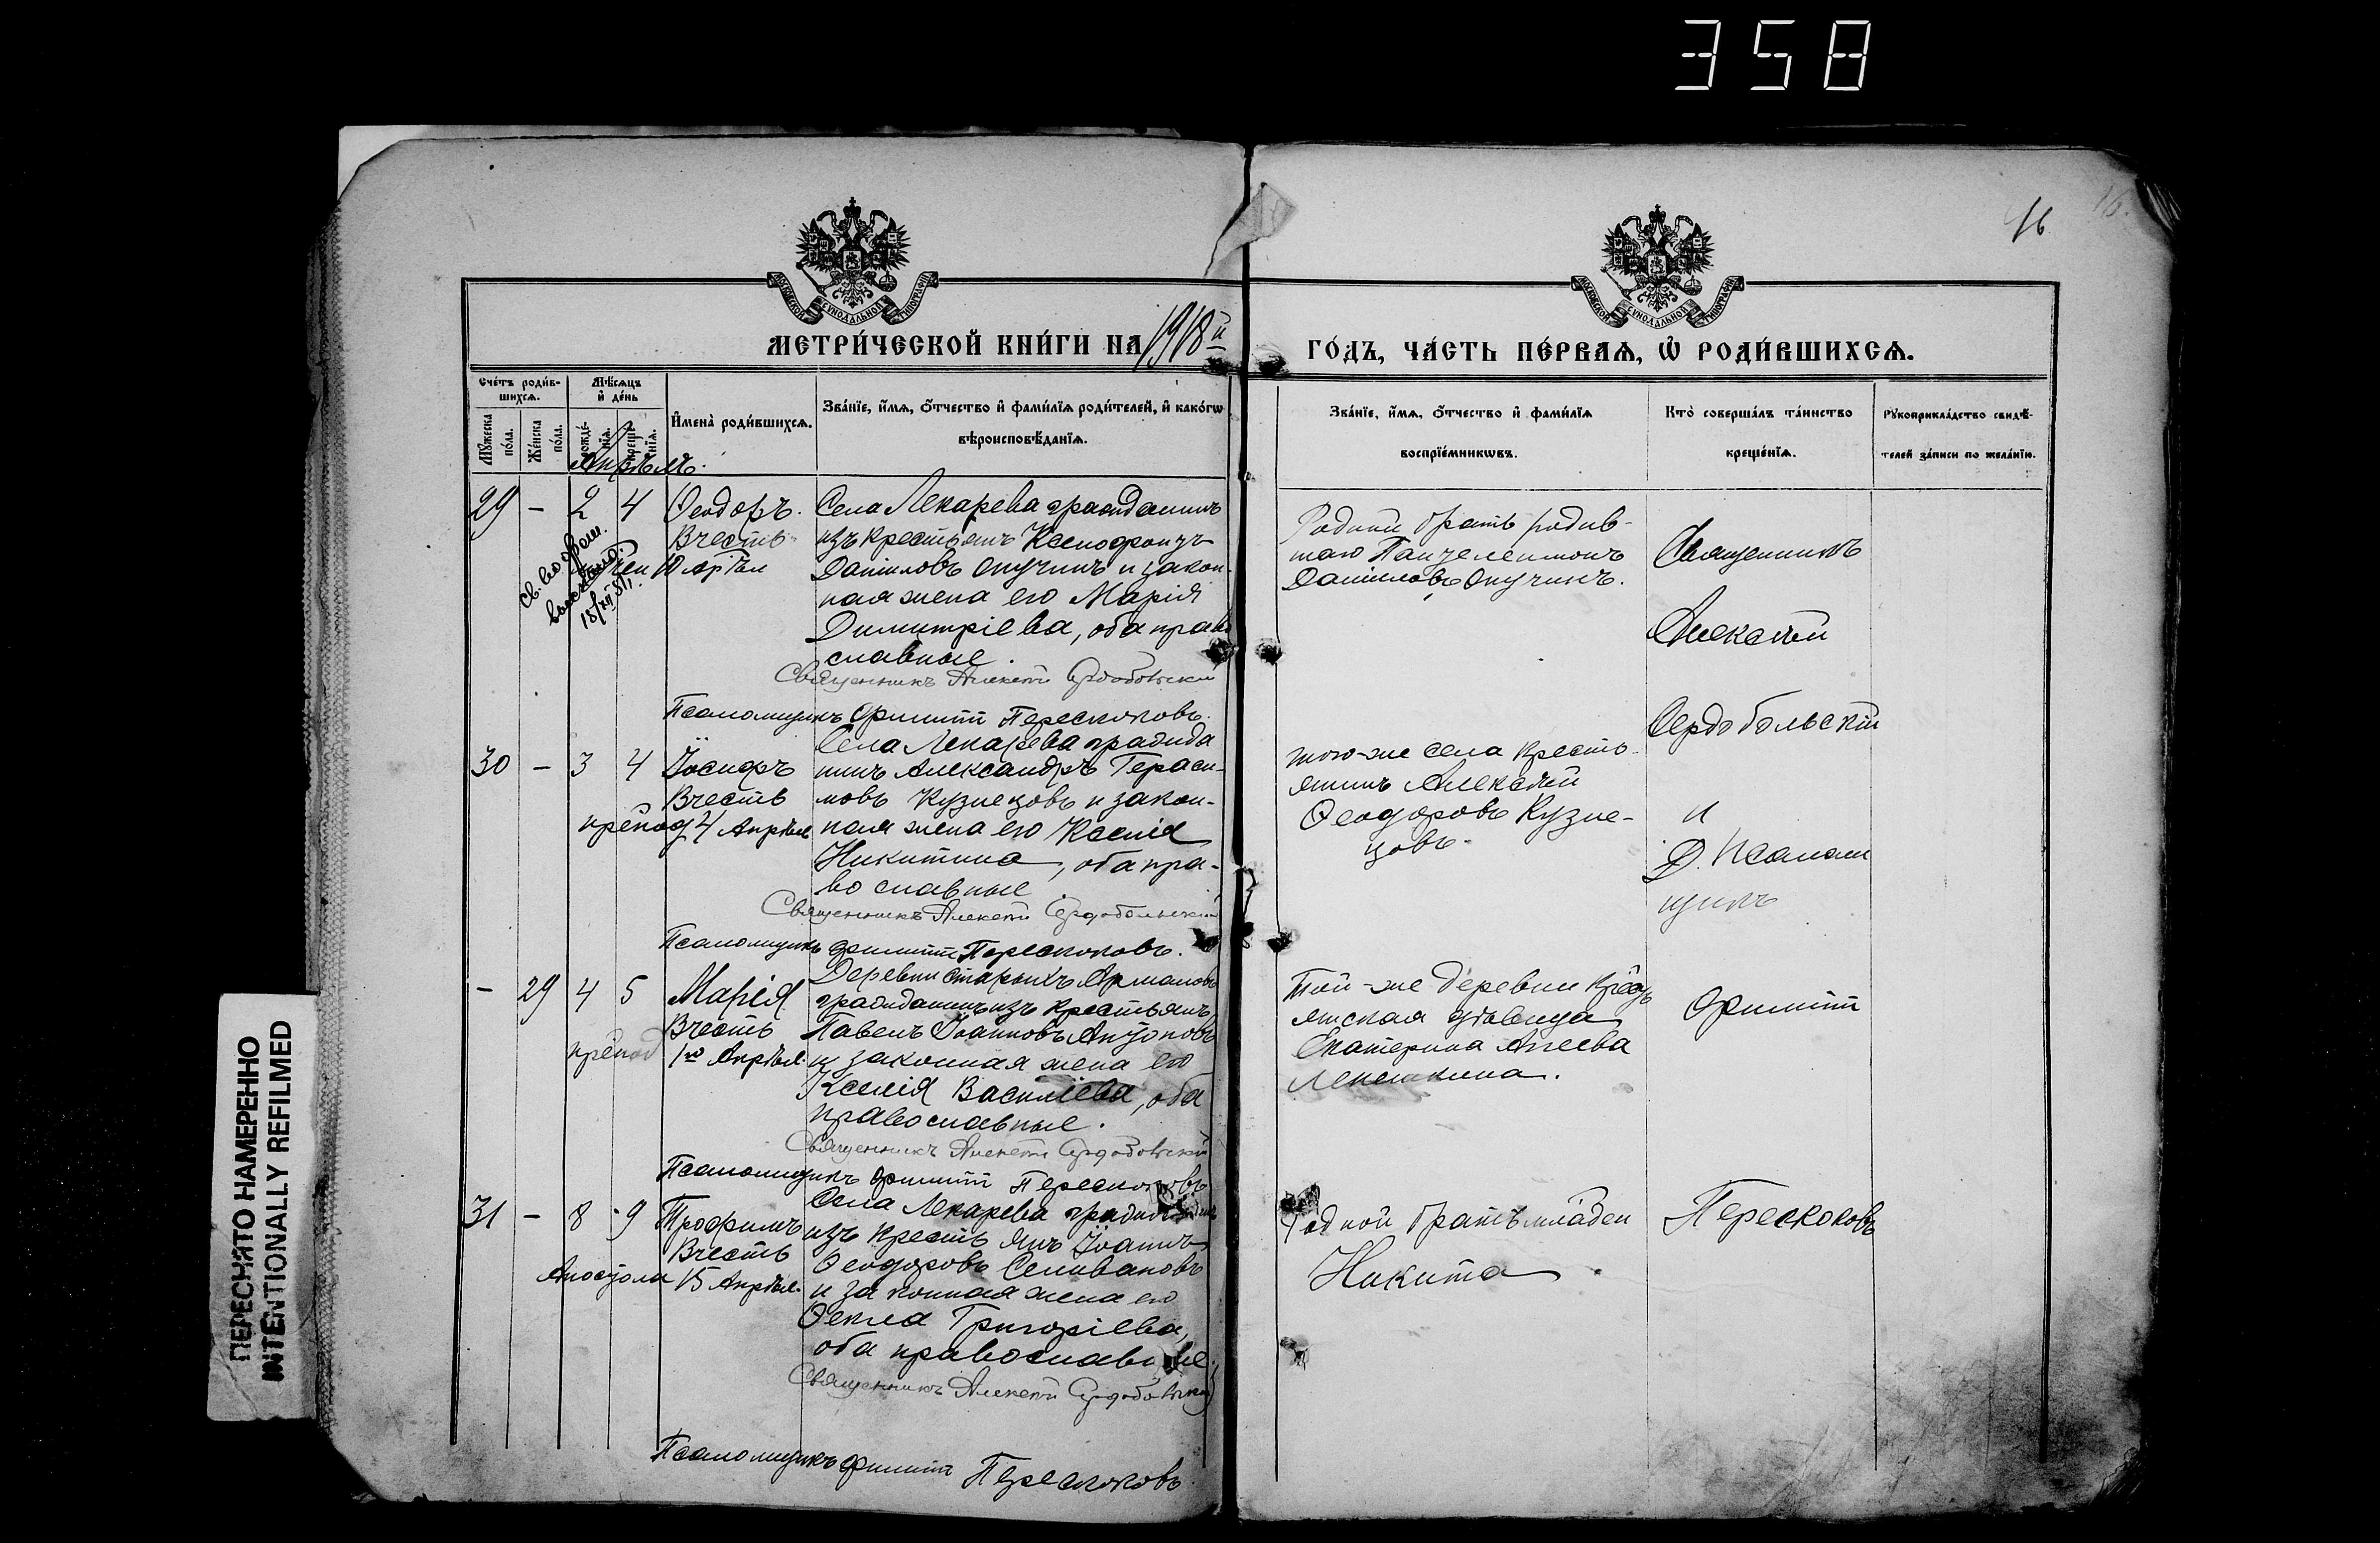 358
16
16.
МОСКОВСКОЙ СѴНОДАЛЬНОЙ ТИПОГРАФІИ
МОСКОВСКОЙ СѴНОДАЛЬНОЙ ТИПОГРАФІИ
МЕТРИ́ЧЕСКОЙ КНИ́ГИ НА 1918й ГО́ДЪ, ЧА́СТЬ ПЕ́РВАѦ, Ѽ РОДИ́ВШИХСѦ.
Сче́тъ роди́вшихсѧ.
Мꙋжеска по́ла.
Же́нска по́ла.
Мѣ́сѧцъ и҆ де́нь
рожде́нїѧ.
креще́нїѧ.
И҆мена̀ роди́вшихсѧ.
Зва́нїе, и҆́мѧ, ѻ҆́тчество и҆ фами́лїѧ роди́телей, и҆ како́гѡ
вѣроисповѣ́данїѧ.
Зва́нїе, и҆́мѧ, ѻ҆́тчество и҆ фами́лїѧ
воспрїе́мникѡвъ.
Кто̀ соверша́лъ та́инство
креще́нїѧ.
Рꙋкоприкла́дство свидѣ́-
телей за́писи по жела́нїю.
Апрѣль.
29 - 2 4 Ѳеодоръ.
Вчесть
Села Лекарева гражданинъ
изъ крестьянъ Ксенофонтъ
Даніиловъ Опучинъ и закон-
ная жена его Марія
Димитріева, оба право
славные.
Священникъ Алексѣй Сердобольскій
Псаломщикъ Филиппъ Перескоковъ.
Родной братъ родив-
шаго Пантелеимонъ
Даніиловъ Опучинъ.
Священникъ
Алексѣй
Сердобольскій
и
Д. Псалом
щикъ
Филиппъ
Перескоковъ
30 - 3 4 Іосифъ
Вчесть
препод 4 Апрѣля
Села Лекарева гражда
нинъ Александръ Гераси-
мовъ Кузнецовъ и закон-
ная жена его Ксенія
Никитина, оба пра-
вославные
Священникъ Алексѣй Сердобольскій
Псаломщикъ Филиппъ Перескоковъ.
того-же села кресть
янинъ Алексѣй
Ѳеодоровъ Кузне-
цовъ.
- 29 4 5 Марія
Вчесть
препод 1го Апрѣля.
Деревни Старыхъ
гражданинъ изъ крестьянъ
Павелъ Іоанновъ Антоновъ
и законная жена его
Ксенія Василіева, оба
православные.
Священникъ Алексѣй Сердобольскій
Псаломщикъ Филиппъ Перескоковъ
Той-же деревни крес
янская дѣвица
Екатерина Агеева
31 - 8 9 Трофимъ
Вчесть
Апостола 15 Апрѣля.
Села Лекарева гражданинъ
изъ крестьянъ Іоаннъ
Ѳеодоровъ Селивановъ
и законная жена его
Ѳекла Григоріева,
оба православные.
Священникъ Алексѣй Сердобольскій
Псаломщикъ Филиппъ Перескоковъ
Родной братъ младен
Никита
ПЕРЕСНЯТО НАМЕРЕННО
INTENTIONALLY REFILMED